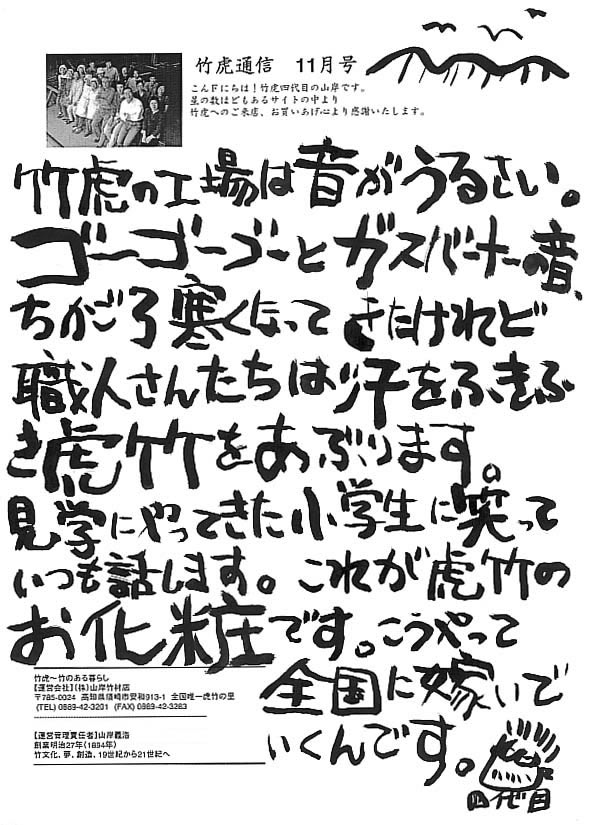 竹虎通信 11月号
こんにちは！竹虎四代目の山岸です。
星の数ほどもあるサイトの中より
竹虎へのご来店、お買いあげ心より感謝いたします。
竹虎の工場は音がうるさい。
ゴーゴーゴーとガスバーナーの音、
ちかごろ寒くなってきたけれど
職人さんたちは汗をふきふ
き虎竹をあぶります。
見学にやってきた小学生に笑って
いつも話します。これが虎竹の
お化粧です。こうやって
全国に嫁いで
いくんです。
四代目
竹虎〜竹のある暮らし
【運営会社】(株)山岸竹材店
〒785-0024 高知県須崎市安和913-1 全国唯一虎竹の里
(TEL) 0889-42-3201 (FAX) 0889-42-3283
【運営管理責任者】山岸義浩
創業明治27年(1894年)
竹文化、夢、創造、19世紀から21世紀へ